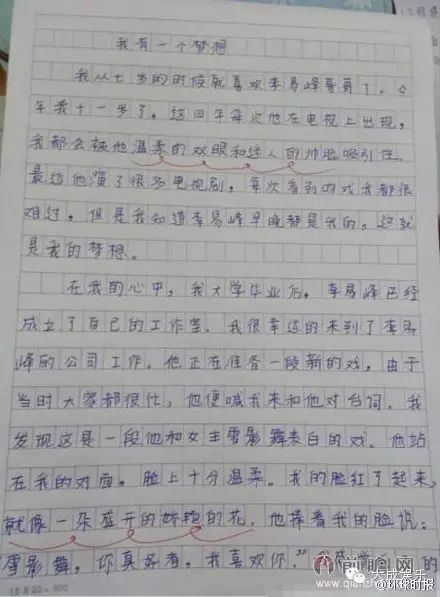 我有一个梦想
我从七岁的时候就喜欢李易峰哥哥了。今
年我十一岁了。这四年每次他在电视上出现，
我都会被他温柔的双眼和迷人的帅出吸引住。
最近他演了很多电视剧，每次看到吻戏我都很
难过。但是我知道李易峰早晚都是我的，这就
是我的梦想。
在我的心中，我大学毕业后，李易峰已经
成立了自己的工作室。我很幸运的来到了李易
峰的公司工作。他正在准备一段新的戏，由于
当时大家都很忙，他便喊我来和他对台词。我
发现这是一段他和女主雪影舞表白的戏。他站
在我的对面。脸上十分温柔。我的脸红了起来，
就像一朵盛开的娇艳的花。他捧着我的脸说：
雪影舞，你真好看，我喜欢你。" 的
15×20=300
前瞻网
大成娱乐
@环球时报